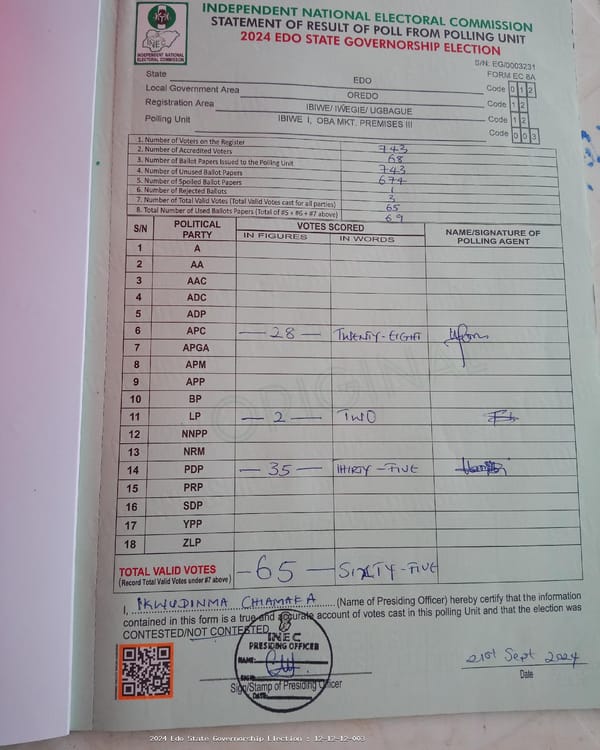 INDEPENDENT NATIONAL ELECTORAL COMMISSION
STATEMENT OF RESULT OF POLL FROM POLLING UNIT
2024 EDO STATE GOVERNORSHIP ELECTION
INEC
INDEPENDENT NATIONAL ELECTORAL COMMISSION
S/N: EG/0003231
FORM EC 8A
State EDO Code 0 1 2
Local Government Area OREDO Code 1 2
Registration Area IBIWE/ IWEGIE/ UGBAGUE Code 1 2
Polling Unit IBIWE I, OBA MKT. PREMISES III Code 0 0 3
1. Number of Voters on the Register 743
2. Number of Accredited Voters 68
3. Number of Ballot Papers Issued to the Polling Unit 743
4. Number of Unused Ballot Papers 674
5. Number of Spoiled Ballot Papers 1
6. Number of Rejected Ballots 3
7. Number of Total Valid Votes (Total Valid Votes cast for all parties) 65
8. Total Number of Used Ballots Papers (Total of #5 + #6 + #7 above) 69
S/N POLITICAL PARTY VOTES SCORED NAME/SIGNATURE OF POLLING AGENT
IN FIGURES IN WORDS
1 A
2 AA
3 AAC
4 ADC
5 ADP
6 APC — 28 — TWENTY-EIGHT
7 APGA
8 APM
9 APP
10 BP
11 LP — 2 — TWO
12 NNPP
13 NRM
14 PDP — 35 — THIRTY-FIVE
15 PRP
16 SDP
17 YPP
18 ZLP
ORIGINAL
TOTAL VALID VOTES — 65 — SIXTY-FIVE
(Record Total Valid Votes under #7 above)
I, IKWUDINMA CHIAMAKA (Name of Presiding Officer) hereby certify that the information
contained in this form is a true and accurate account of votes cast in this polling Unit and that the election was
CONTESTED/NOT CONTESTED
INEC
PRESIDING OFFICER
NAME:
SIGN:
DATE:
Sign/Stamp of Presiding Officer
21st Sept 2024
Date
2024 Edo State Governorship Election : 12-12-12-003